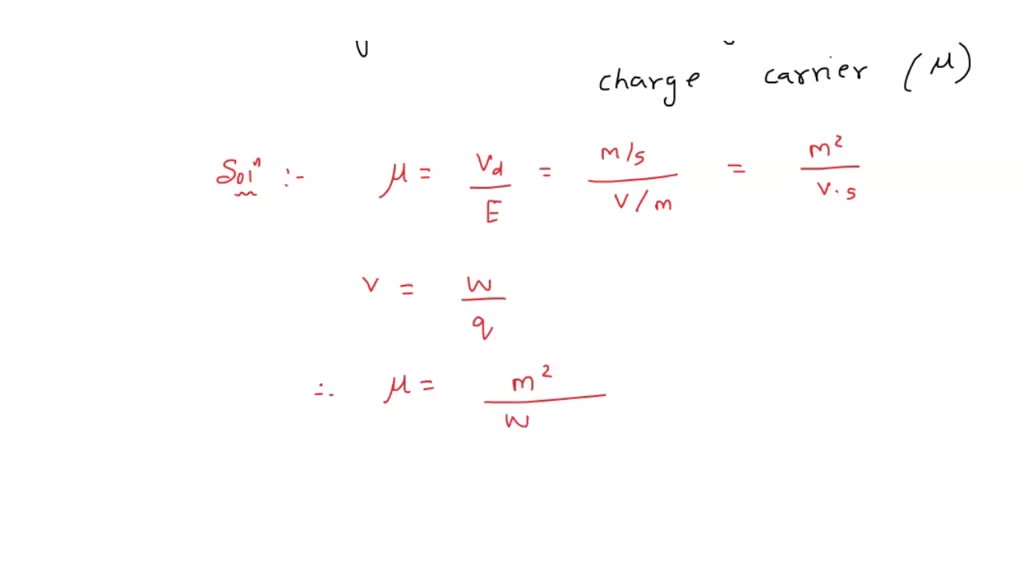 charge carrier (μ)
Solⁿ :- μ = Vd / E = m/s / V/m = m² / V·s
V = W / q
∴ μ = m² / W